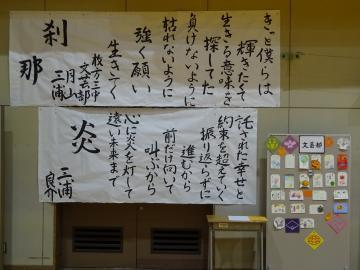 きっと僕らは
輝きたくて
生きる意味を
探してた
負けないように
枯れないように
強く願い
生きてく
刹那
枚方三中
文芸部
三浦
託された幸せと
約束を超えていく
振り返らずに
進むから
前だけ向いて
叫ぶから
心に炎を灯して
遠い未来まで
炎
三浦
文芸部